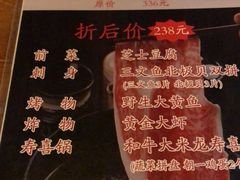 原价 336元
折后价 238元
前菜 芝士豆腐
刺身 三文鱼北极贝双拼
(三文鱼3片 北极贝3片)
烤物 野生大黄鱼
炸物 黄金大虾
寿喜锅 和牛大米龙寿喜
(蔬菜拼盘 朝一鸡蛋2